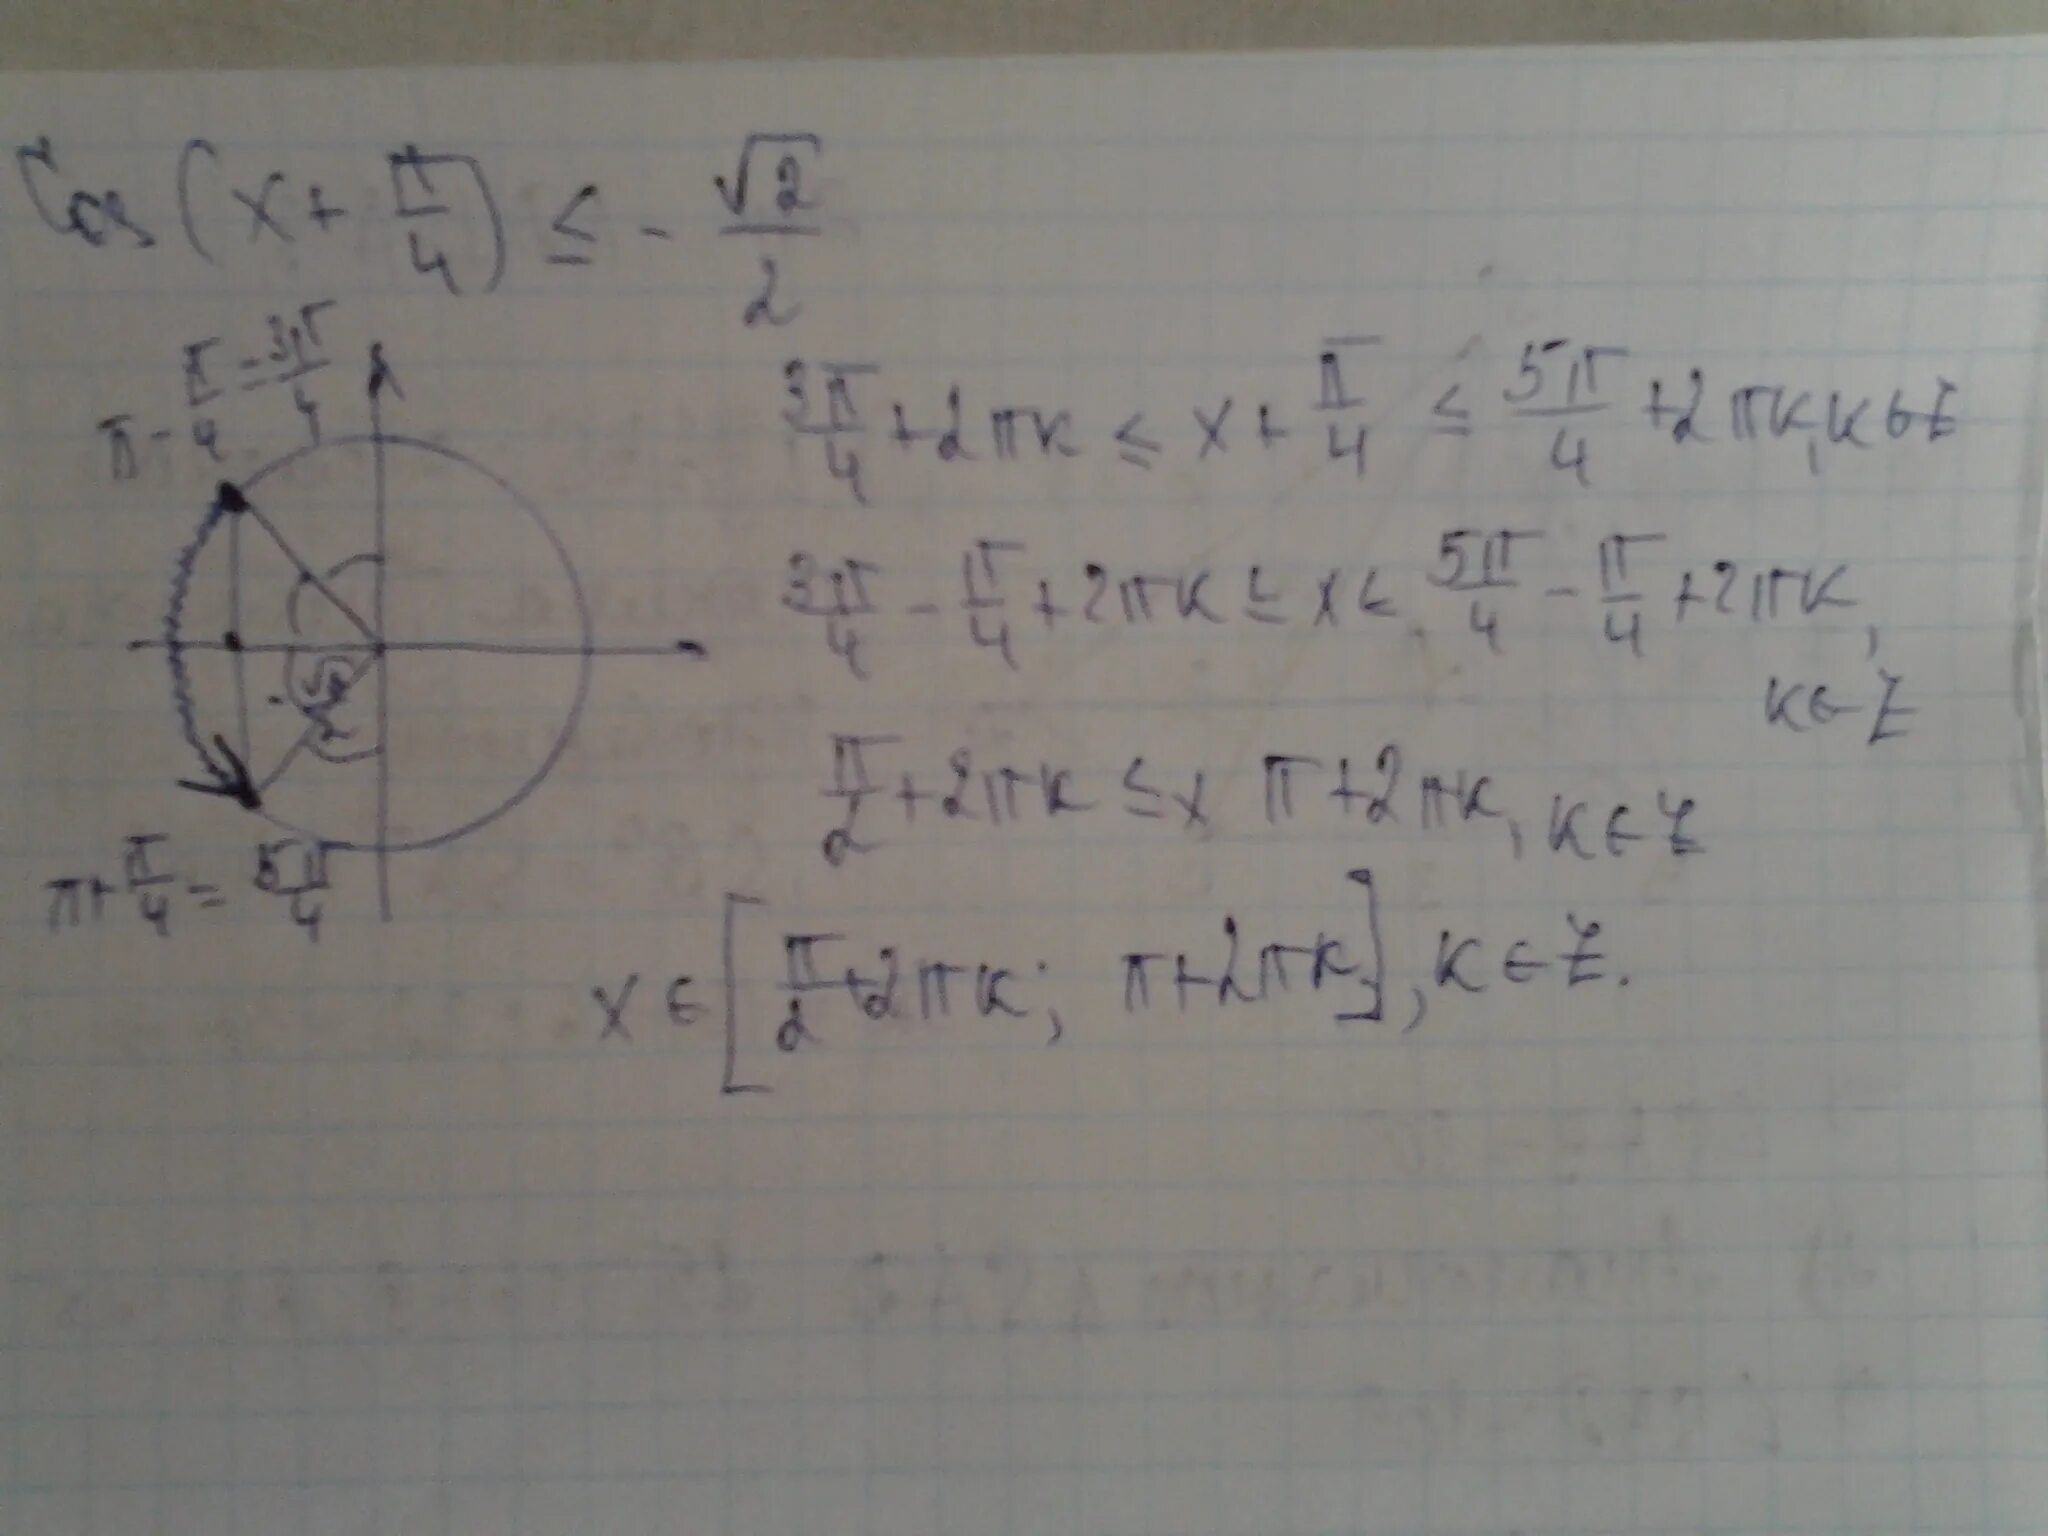 Cos (x + π/4) ≤ - √2/2
π - π/4 = 3π/4
3π/4 + 2πk ≤ x + π/4 ≤ 5π/4 + 2πk, k ∈ Z
3π/4 - π/4 + 2πk ≤ x ≤ 5π/4 - π/4 + 2πk,
k ∈ Z
π/2 + 2πk ≤ x π + 2πk, k ∈ Z
π + π/4 = 5π/4
x ∈ [π/2 + 2πk; π + 2πk], k ∈ Z.